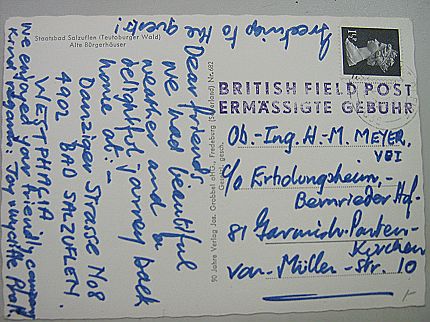 Staatsbad Salzuflen (Teutoburger Wald)
Alte Bürgerhäuser
Greetings to the
guests!
Dear friends,
we had beautiful
weather and a
delightful journey back
home at:-
Danziger Strasse No8
4902 BAD SALZUFLEN.
WESTPHALIA
We enjoyed your friendly company
Kind regards:
90 Jahre Verlag Jos. Grobbel oHG, Fredeburg (Sauerland) Nr. 622
Gesetzl. gesch.
BRITISH FIELD POST
ERMÄSSIGTE GEBÜHR
Ob.-Ing. H.-M. MEYER,
VDI
c/o Erholungsheim,
Bernrieder Hof-
81 Garmisch-Parten-
Kirchen
von-Müller-str. 10